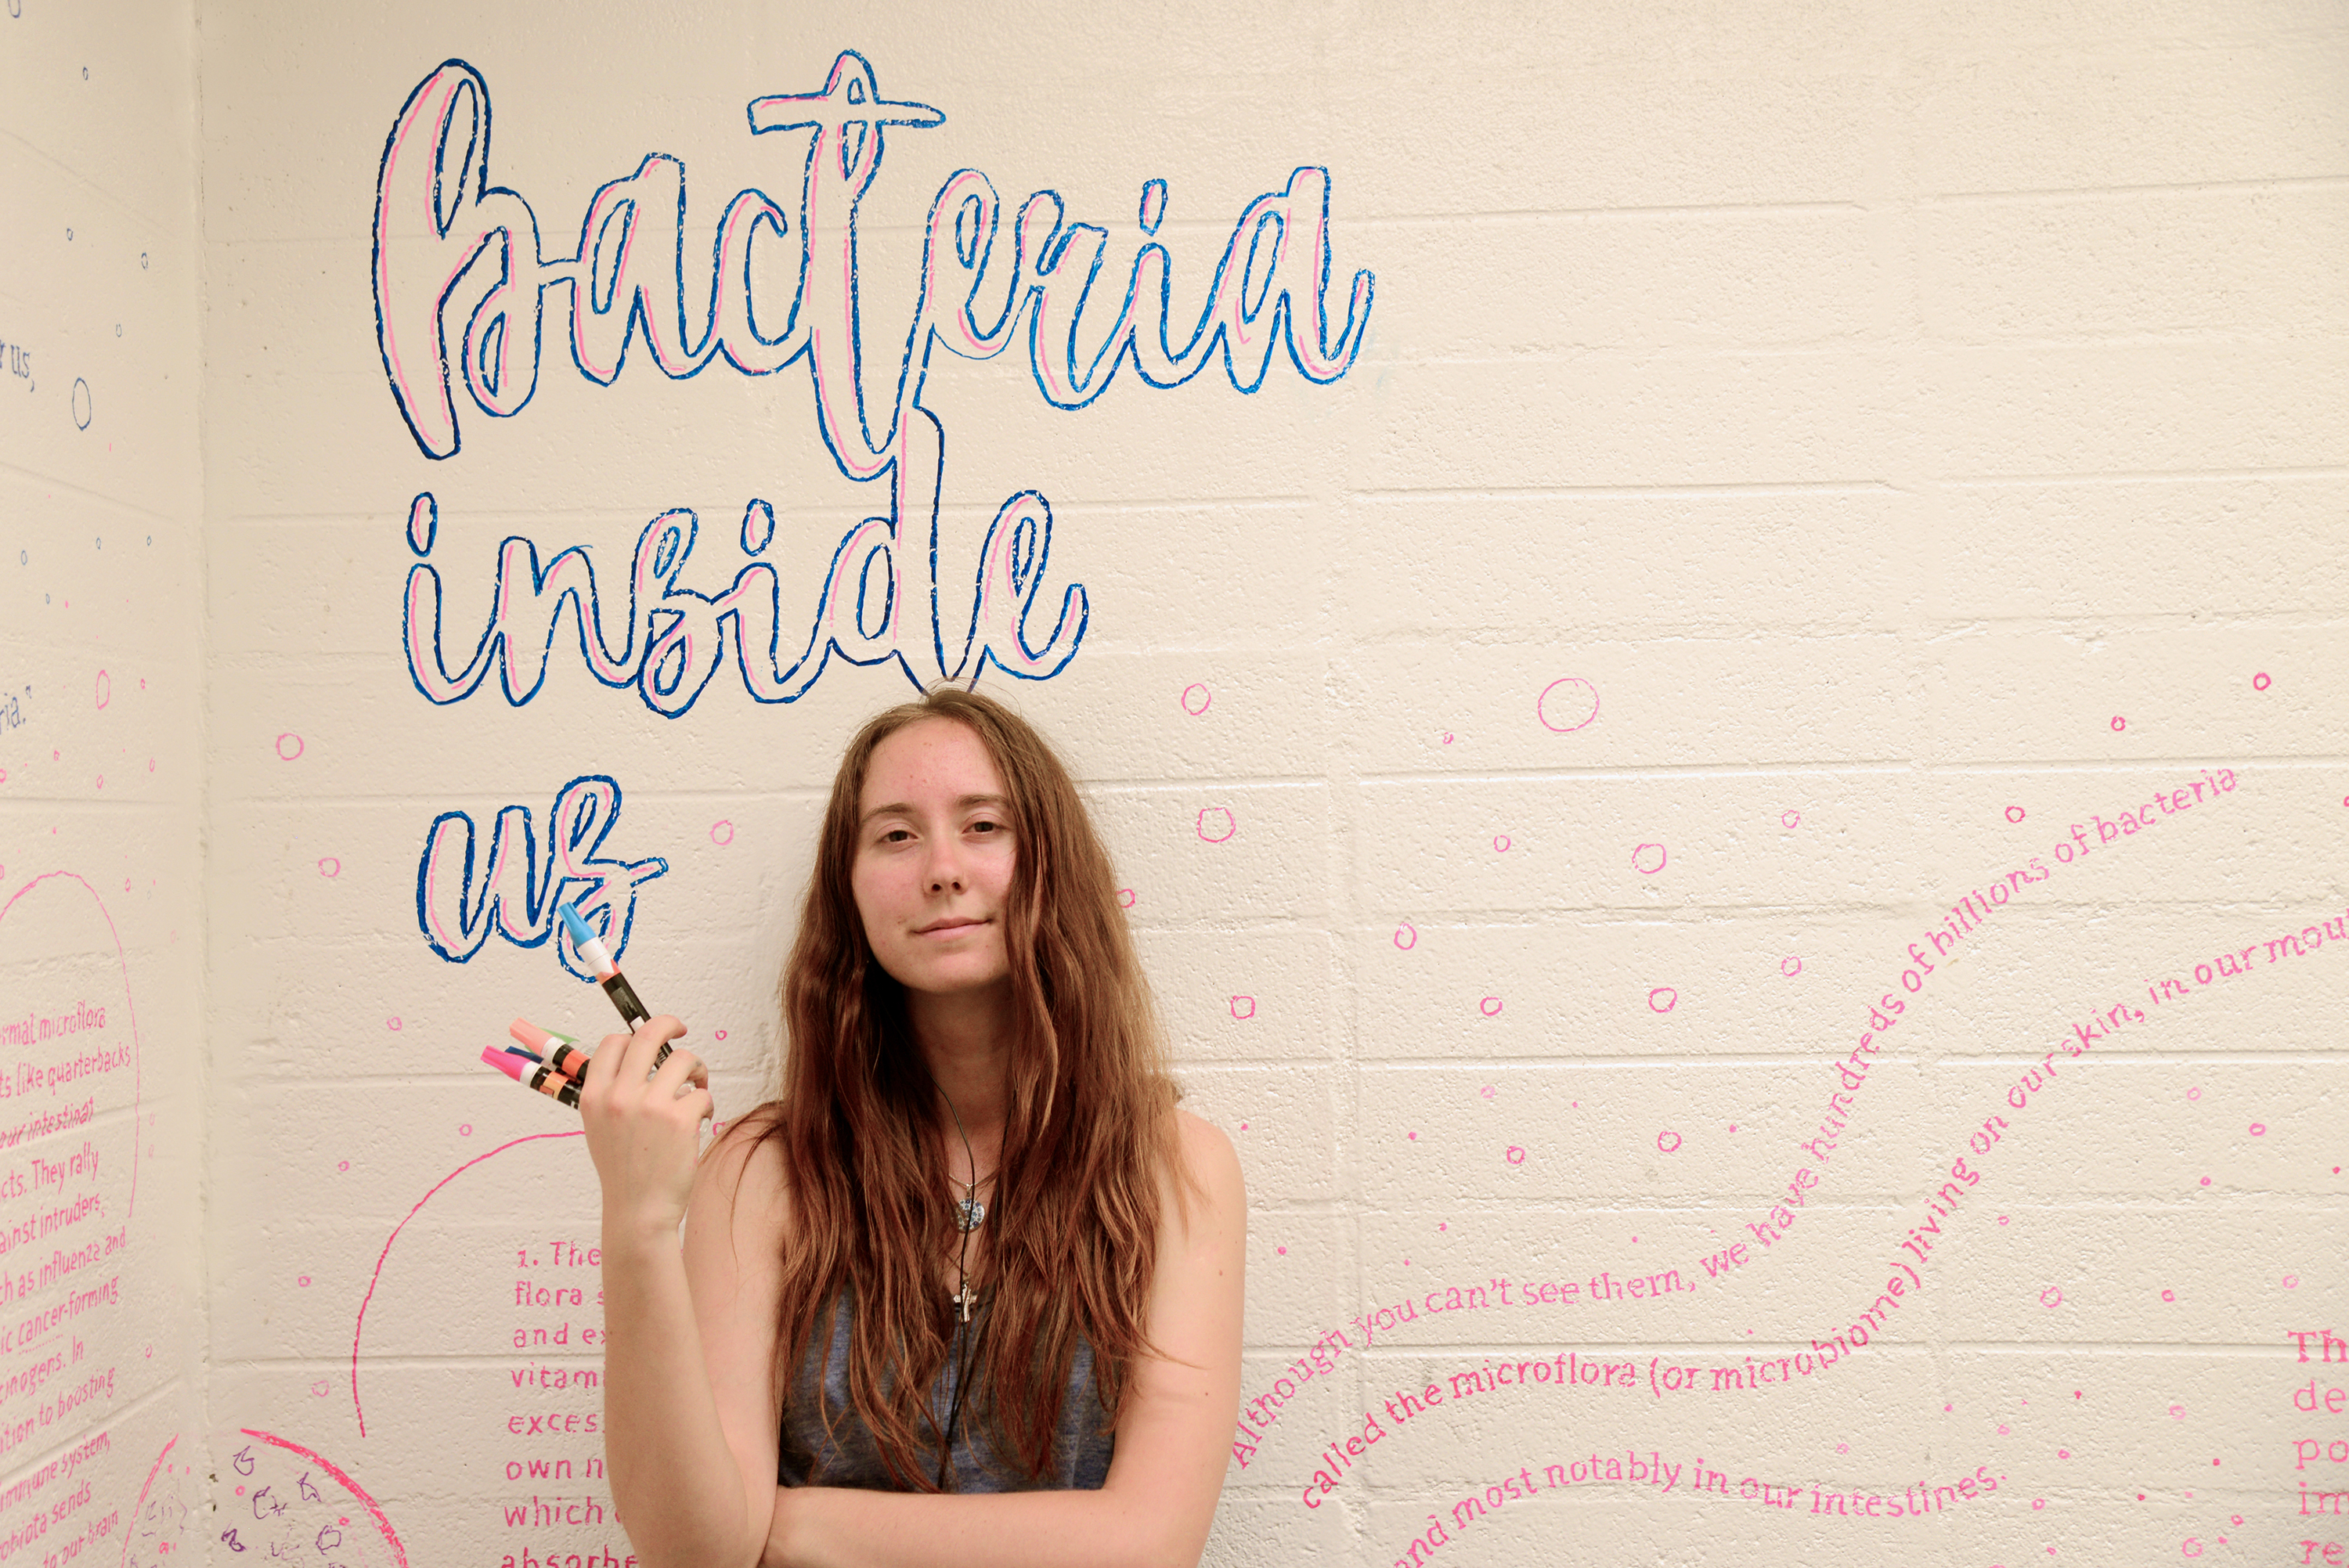 bacteria
inside
us
us,
Although you can't see them, we have hundreds of billions of bacteria
called the microflora (or microbiome) living on our skin, in our mou
and most notably in our intestines.
1. The
flora s
and ex
vitam
exces
own n
which
absorbe
rmal microflora
ts like quarterbacks
our intestinal
cts. They rally
ainst intruders,
ch as influenza and
ic cancer-forming
cinogens. In
ition to boosting
mmune system,
robiota sends
to our brain
ria."
Th
de
po
im
re